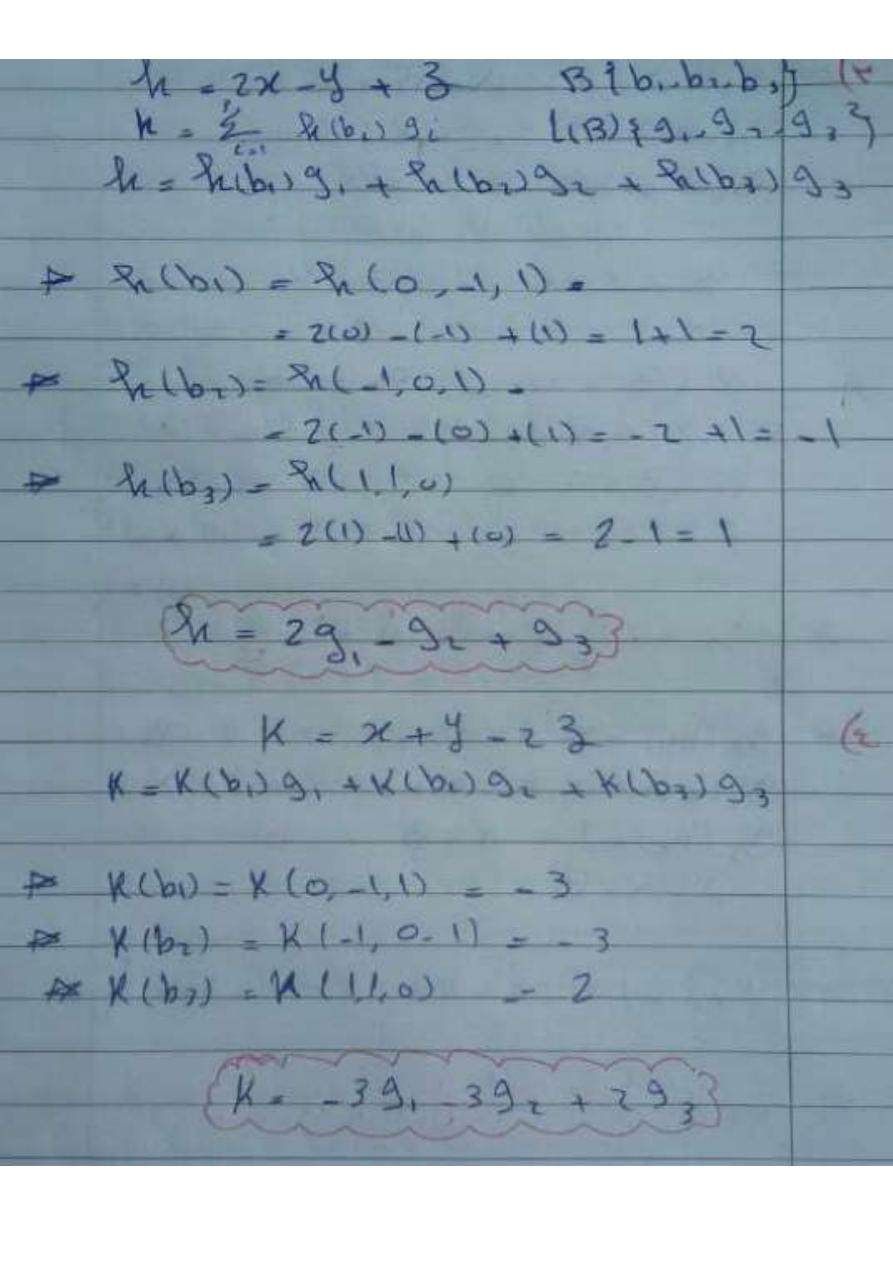 h = 2x - y + z B{b₁, b₂, b₃} (٣
h = Σ h(bᵢ) gᵢ L(B){g₁, g₂, g₃}
h = h(b₁)g₁ + h(b₂)g₂ + h(b₃)g₃
h(b₁) = h(0, -1, 1) =
= 2(0) - (-1) + (1) = 1+1 = 2
h(b₂) = h(-1, 0, 1) =
= 2(-1) - (0) + (1) = -2 + 1 = -1
h(b₃) = h(1, 1, 0)
= 2(1) - (1) + (0) = 2 - 1 = 1
h = 2g₁ - g₂ + g₃
K = x + y - 2z (٤
K = K(b₁)g₁ + K(b₂)g₂ + K(b₃)g₃
K(b₁) = K(0, -1, 1) = -3
K(b₂) = K(-1, 0, 1) = -3
K(b₃) = K(1, 1, 0) = 2
K = -3g₁ - 3g₂ + 2g₃